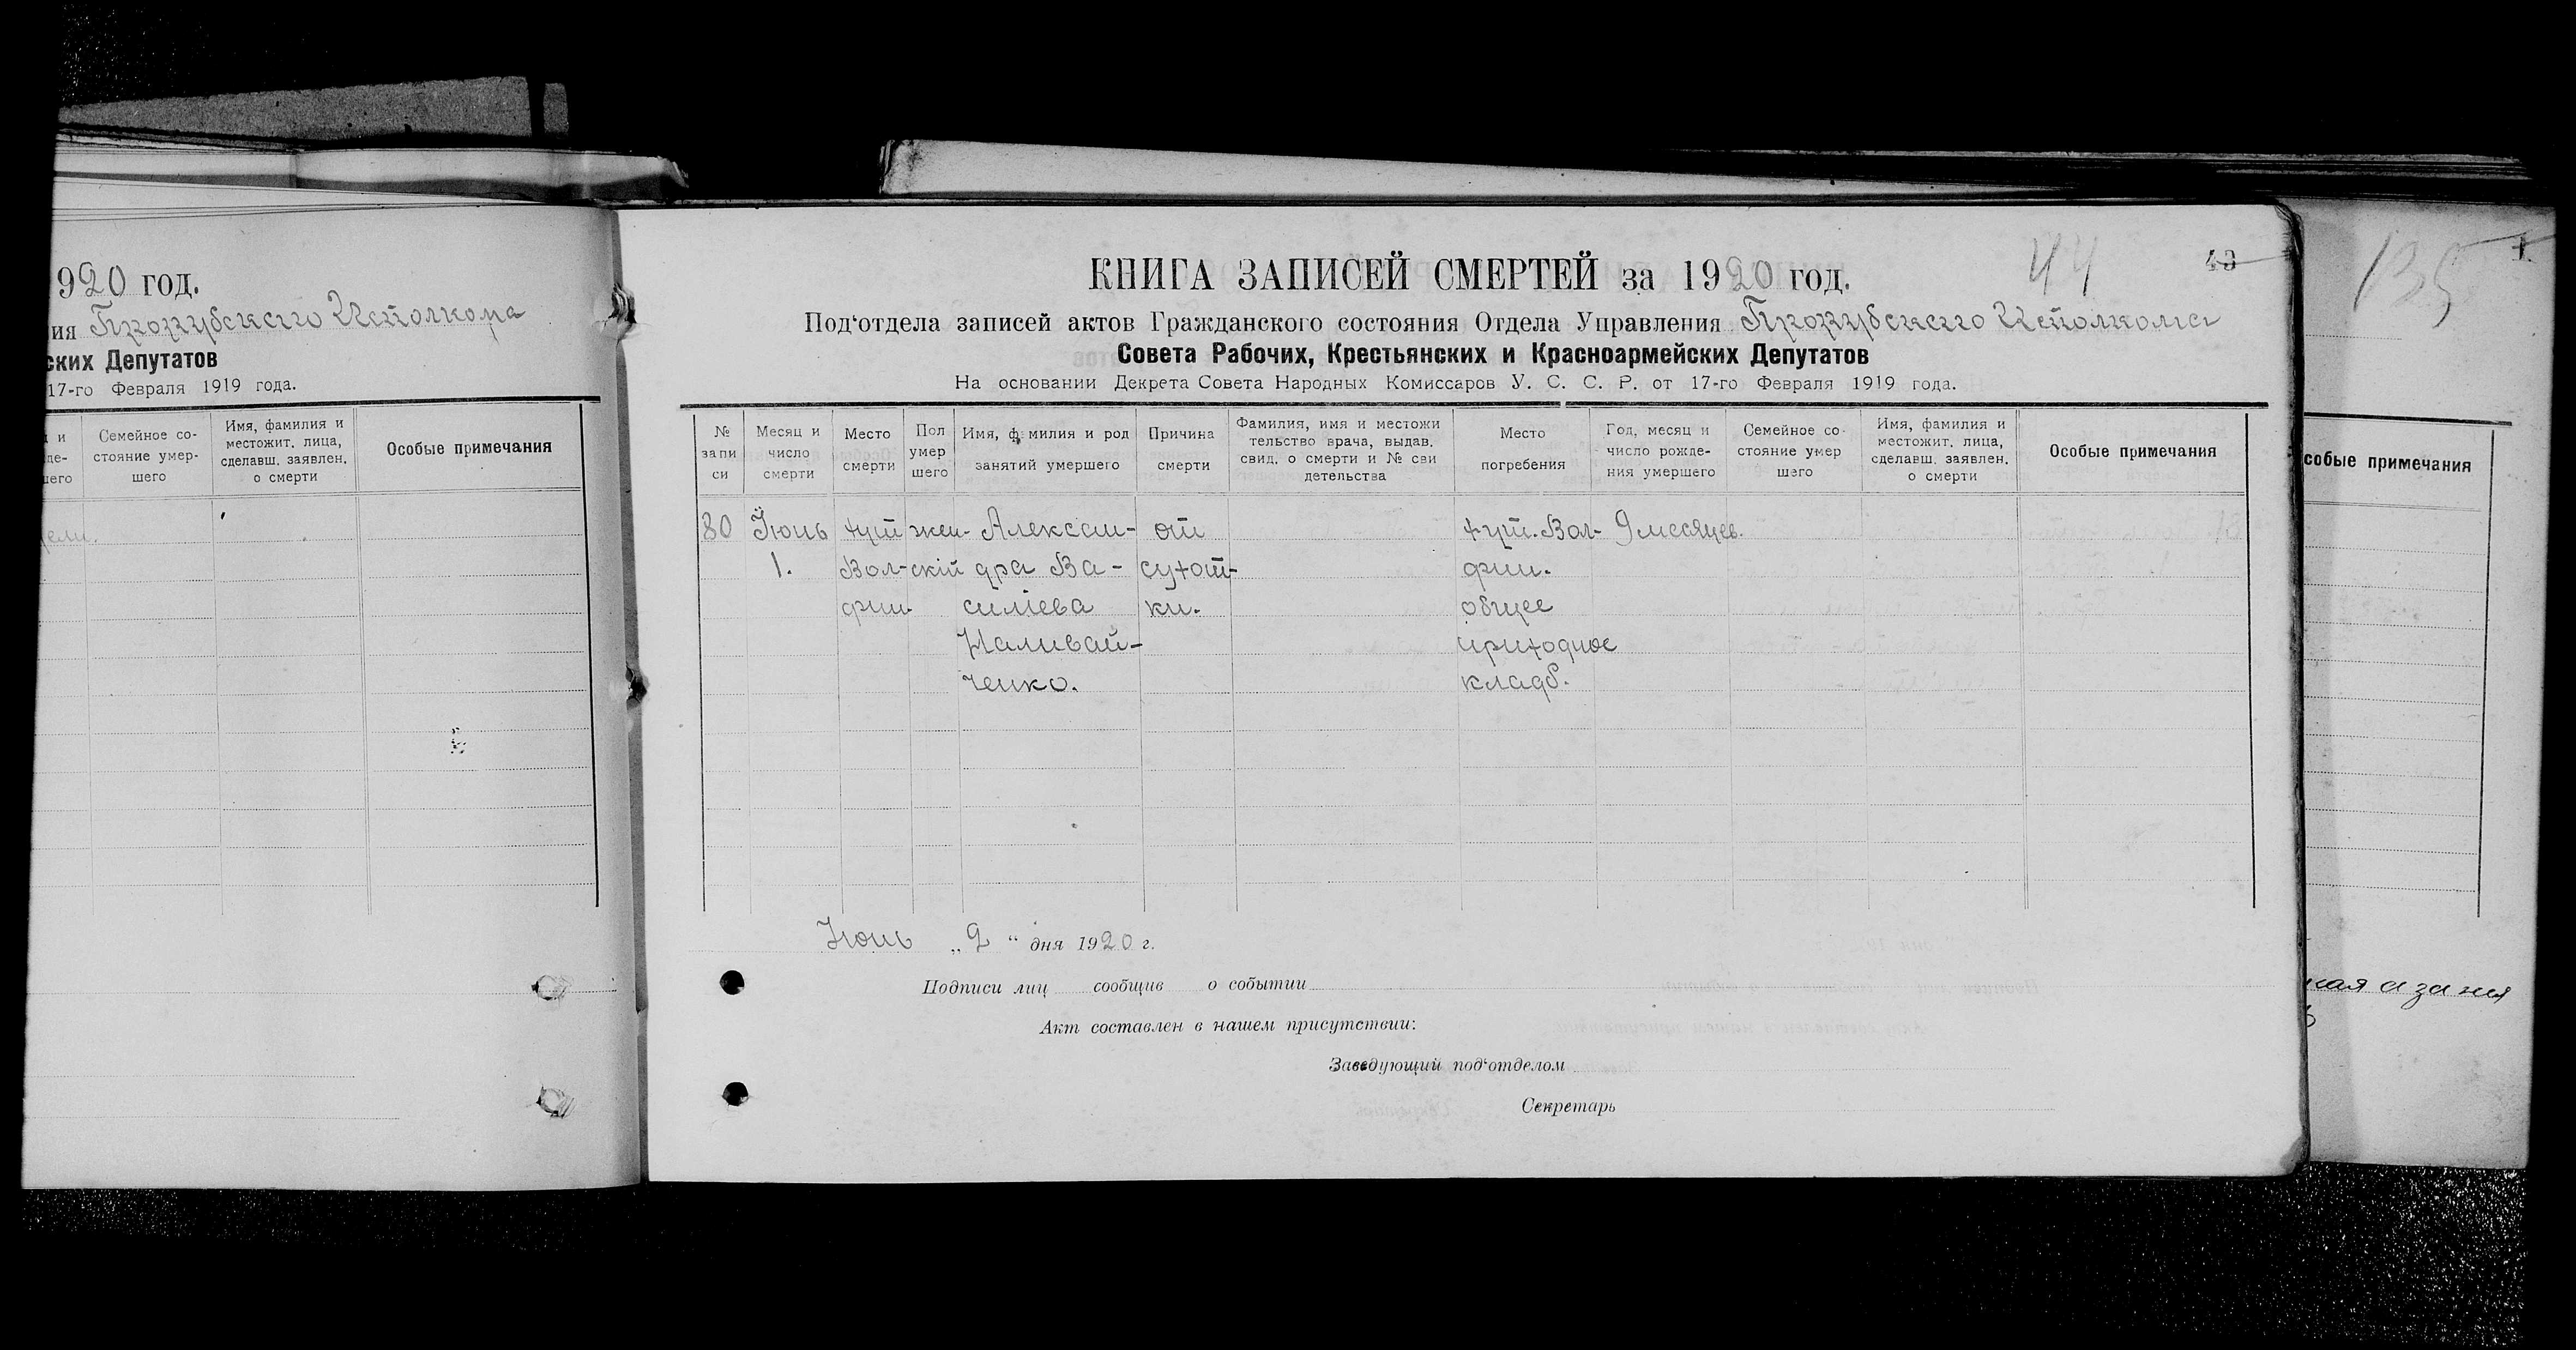 920 год.
ия Трохубского Исполкома
ских Депутатов
17-го Февраля 1919 года.
Семейное со-
стояние умер-
шего
Имя, фамилия и
местожит. лица,
сделавш. заявлен.
о смерти
Особые примечания
КНИГА ЗАПИСЕЙ СМЕРТЕЙ за 1920 год.
44
43
135
Под‘отдела записей актов Гражданского состояния Отдела Управления Исполкома
Совета Рабочих, Крестьянских и Красноармейских Депутатов
На основании Декрета Совета Народных Комиссаров У. С. С. Р. от 17-го Февраля 1919 года.
№
запи
си
Месяц и
число
смерти
Место
смерти
Пол
умер
шего
Имя, фамилия и род
занятий умершего
Причина
смерти
Фамилия, имя и местожи
тельство врача, выдав.
свид. о смерти и № сви
детельства
Место
погребения
Год, месяц и
число рожде-
ния умершего
Семейное со-
стояние умер
шего
Имя, фамилия и
местожит. лица,
сделавш. заявлен.
о смерти
Особые примечания
собые примечания
80
Іюнь
1.
хут
Вол-
фин.
жен-
скій
Алексан-
дра Ва-
силіева
Наливай-
ченко.
от
сухот-
ки.
хут. Вол-
фин.
общее
приходное
кладб.
9 месяцев.
Іюнь „2“ дня 1920 г.
Подписи лиц сообщив о событии
Акт составлен в нашем присутствии:
Заведующий под‘отделом
Секретарь